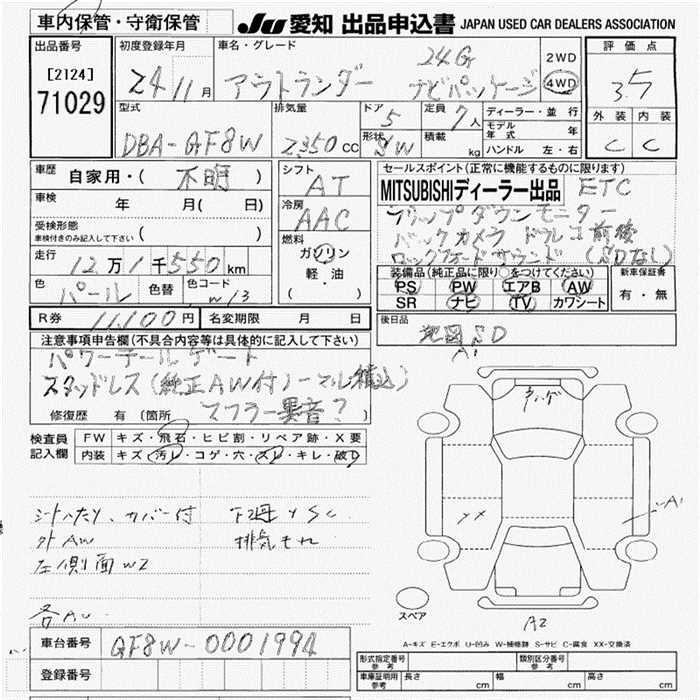 車内保管・守衛保管
JU 愛知 出品申込書 JAPAN USED CAR DEALERS ASSOCIATION
出品番号 [2124] 71029
初度登録年月 24 11月
車名・グレード アウトランダー 24G ナビパッケージ
2WD 4WD
評価点 3.5
外装 内装 C C
型式 DBA-GF8W
排気量 2350cc
ドア 5
形状 SW
定員 7人
積載 kg
ディーラー・並行
モデル年式 年
ハンドル 左・右
車歴 自家用・(不明)
車検 年 月( 日)
受検形態 車検付きのみ記入して下さい ( )
走行 12万1千550km
色 パール 色替 色コード W13
シフト AT
冷房 AAC
燃料 ガソリン 軽・油 ( )
セールスポイント(正常に機能するものに限ります)
MITSUBISHIディーラー出品 ETC
フリップダウンモニター
バックカメラ ドラレコ前後
ロックフォードサウンド (SDなし)
装備品(純正品に限り○をつけてください)
PS PW エアB AW
SR ナビ TV カワシート
新車保証書 有・無
R券 11,100円 名変期限 月 日
後日品 地図SD
注意事項申告欄(不具合内容等は具体的に記入して下さい)
パワーテールゲート
スタッドレス(純正AW付ノーマル積込)
マフラー異音?
修復歴 有(箇所
検査員記入欄
FW キズ・飛石・ヒビ割・リペア跡・X要
内装 キズ・汚レ・コゲ・穴・スレ・キレ・破レ
シートヘタリ、カバー付 下廻りSC
外AW 排気もれ
左側面W2
A1
A1
XX
A2
スペア
A-キズ E-エクボ U-凹み W-補修跡 S-サビ C-腐食 XX-交換済
車台番号 GF8W-0001994
登録番号
形式指定番号 参考 類別区分番号 参考
車庫証明用 参考 長さ cm 幅 cm 高さ cm